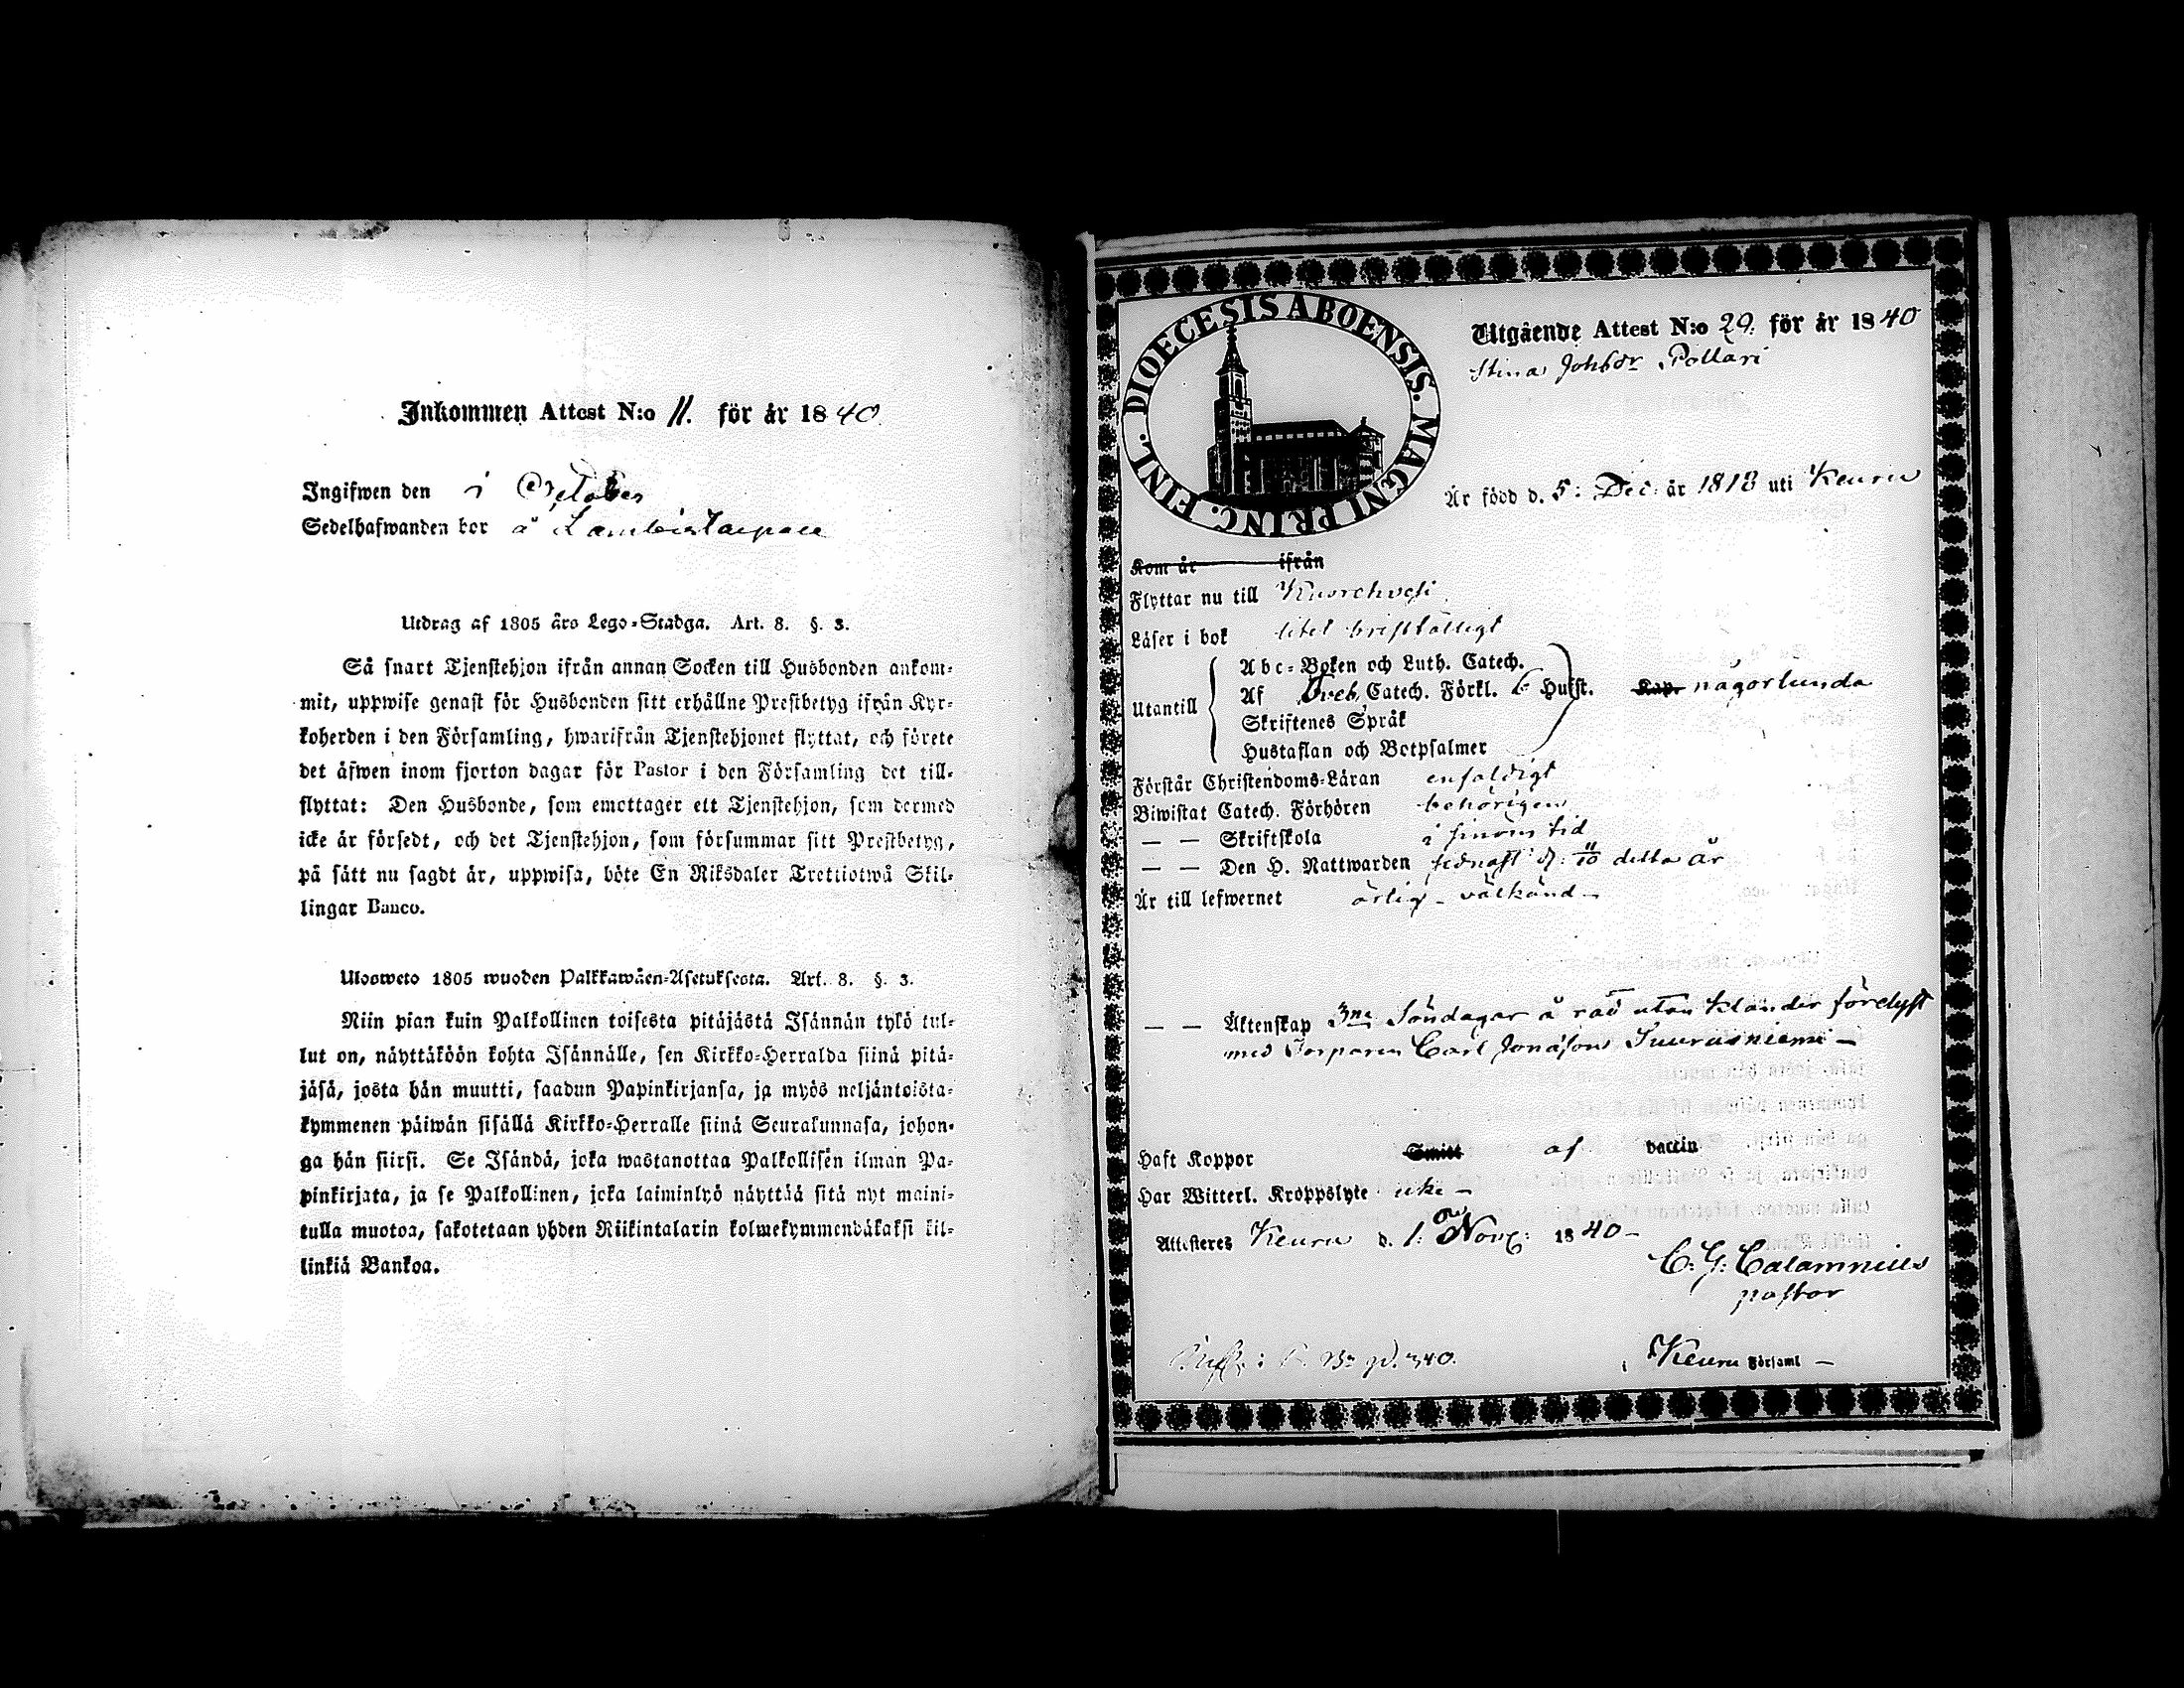 Inkommen Attest N:o 11. för år 1840.
Ingifwen den i October
Sedelhafwanden bor å
Utdrag af 1805 års Lego-Stadga. Art. 8. §. 3.
Så snart Tjenstehjon ifrån annan Socken till Husbonden ankom-
mit, uppwise genast för Husbonden sitt erhållne Prestbetyg ifrån Kyr-
koherden i den Församling, hwarifrån Tjenstehjonet flyttat, och förete
det äfwen inom fjorton dagar för Pastor i den Församling det till-
flyttat: Den Husbonde, som emottager ett Tjenstehjon, som dermed
icke är försedt, och det Tjenstehjon, som försummar sitt Prestbetyg,
på sätt nu sagdt är, uppwisa, böte En Riksdaler Trettiotwå Skil-
lingar Banco.
Ulosweto 1805 wuoden Palkkawäen-Asetuksesta. Art. 8. §. 3.
Niin pian kuin Palkollinen toisesta pitäjästä Isännän tylö tul-
lut on, näyttäköön kohta Isännälle, sen Kirkko-Herralda siinä pitä-
jäsä, josta hän muutti, saadun Papinkirjansa, ja myös neljäntoista-
kymmenen päiwän sisällä Kirkko-Herralle siinä Seurakunnasa, johon-
ga hän siirsi. Se Isändä, joka wastanottaa Palkollisen ilman Pa-
pinkirjata, ja se Palkollinen, joka laiminlyö näyttää sitä nyt maini-
tulla muotoa, sakotetaan yhden Riikintalarin kolmekymmendäkaksi kil-
linkiä Bankoa.
DIOECESIS ABOENSIS. MAGNI PRINC. FINL.
Utgående Attest N:o 29. för år 1840
Stina Johsdr Pollari
Är född d. 5: Dec: år 1818 uti Keuru
Kom år ifrån
Flyttar nu till Kuorehvesi
Läser i bok litet bristfälligt
Utantill
Abc-Boken och Luth. Catech.
Af Sveb. Catech. Förkl. 6 Hufst. Kap. någorlunda
Skriftenes Språk
Hustaflan och Botpsalmer
Förstår Christendoms-Läran enfaldigt
Biwistat Catech. Förhören behörigen
— — Skriftskola i sinom tid
— — Den H. Nattwarden sednast d: 11/10 detta år
Är till lefwernet ärlig - välkänd -
— — Äktenskap 3ne Söndagar å rad utan klander förelyst
med Torparen Carl Jonasson Suurusniemi -
Haft Koppor Smitt af vaccin
Har Witterl. Kroppslyte icke -
Attesteres Keuru d. 1: Nov: 1840 -
C. G: Calamnius
pastor
i Keuru Församl -